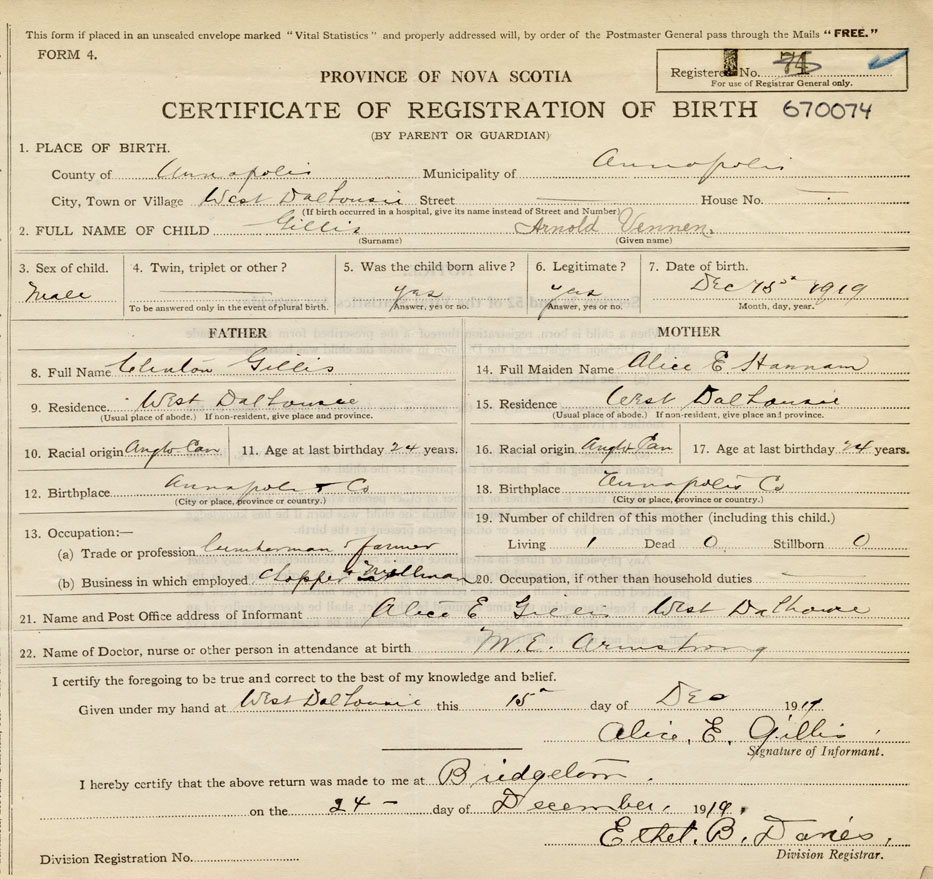 This form if placed in an unsealed envelope marked "Vital Statistics" and properly addressed will, by order of the Postmaster General pass through the Mails "FREE."
FORM 4.
Registered No. 74
For use of Registrar General only.
PROVINCE OF NOVA SCOTIA
CERTIFICATE OF REGISTRATION OF BIRTH 670074
(BY PARENT OR GUARDIAN)
1. PLACE OF BIRTH.
County of Annapolis Municipality of Annapolis
City, Town or Village West Dalhousie Street House No.
(If birth occurred in a hospital, give its name instead of Street and Number)
2. FULL NAME OF CHILD Gillis Arnold Vennen
(Surname) (Given name)
3. Sex of child. 4. Twin, triplet or other? 5. Was the child born alive? 6. Legitimate? 7. Date of birth.
Male yes yes Dec 15 1919
To be answered only in the event of plural birth. Answer, yes or no. Answer, yes or no. Month, day, year.
FATHER MOTHER
8. Full Name Clinton Gillis 14. Full Maiden Name Alice E Hannam
9. Residence. West Dalhousie 15. Residence West Dalhousie
(Usual place of abode.) If non-resident, give place and province. (Usual place of abode.) If non-resident, give place and province.
10. Racial origin Anglo Can 11. Age at last birthday 24 years. 16. Racial origin Anglo Can 17. Age at last birthday 24 years.
12. Birthplace Annapolis Co 18. Birthplace Annapolis Co
(City or place, province or country.) (City or place, province or country.)
19. Number of children of this mother (including this child.)
13. Occupation:—
(a) Trade or profession lumberman farmer Living 1 Dead 0 Stillborn 0
(b) Business in which employed Chopper Millman 20. Occupation, if other than household duties
21. Name and Post Office address of Informant Alice E Gillis West Dalhousie
22. Name of Doctor, nurse or other person in attendance at birth M.E. Armstrong
I certify the foregoing to be true and correct to the best of my knowledge and belief.
Given under my hand at West Dalhousie this 15 day of Dec 1919
Alice. E. Gillis
Signature of Informant.
I hereby certify that the above return was made to me at Bridgetown.
on the 24 - day of December, 1919.
Ethel. B. Davies.
Division Registrar.
Division Registration No.